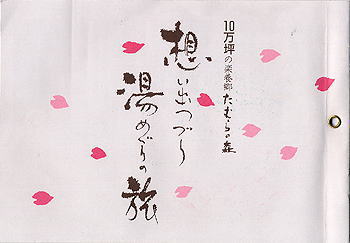 10万坪の楽養郷
たむらの森
想い出つづり
湯めぐりの旅